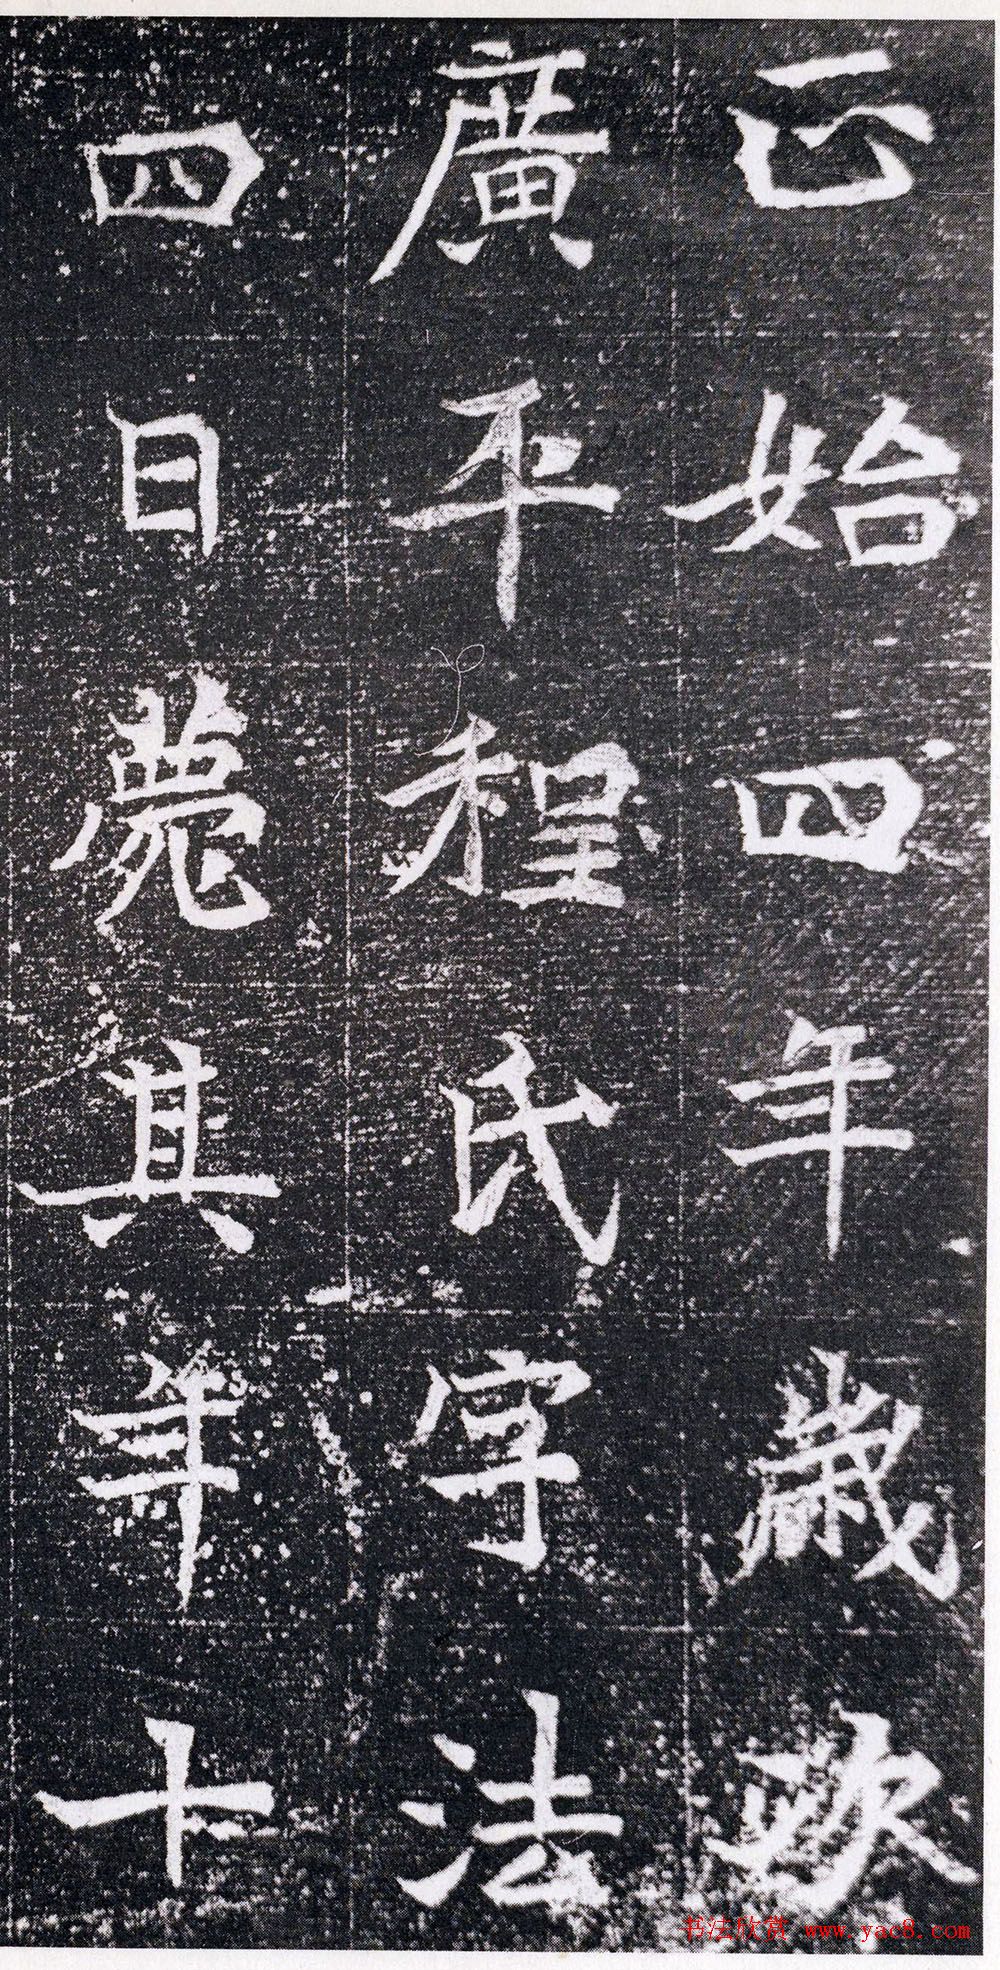 正始四年歲次
廣平程氏字法
四日薨其年十
书法欣赏 www.yac8.com